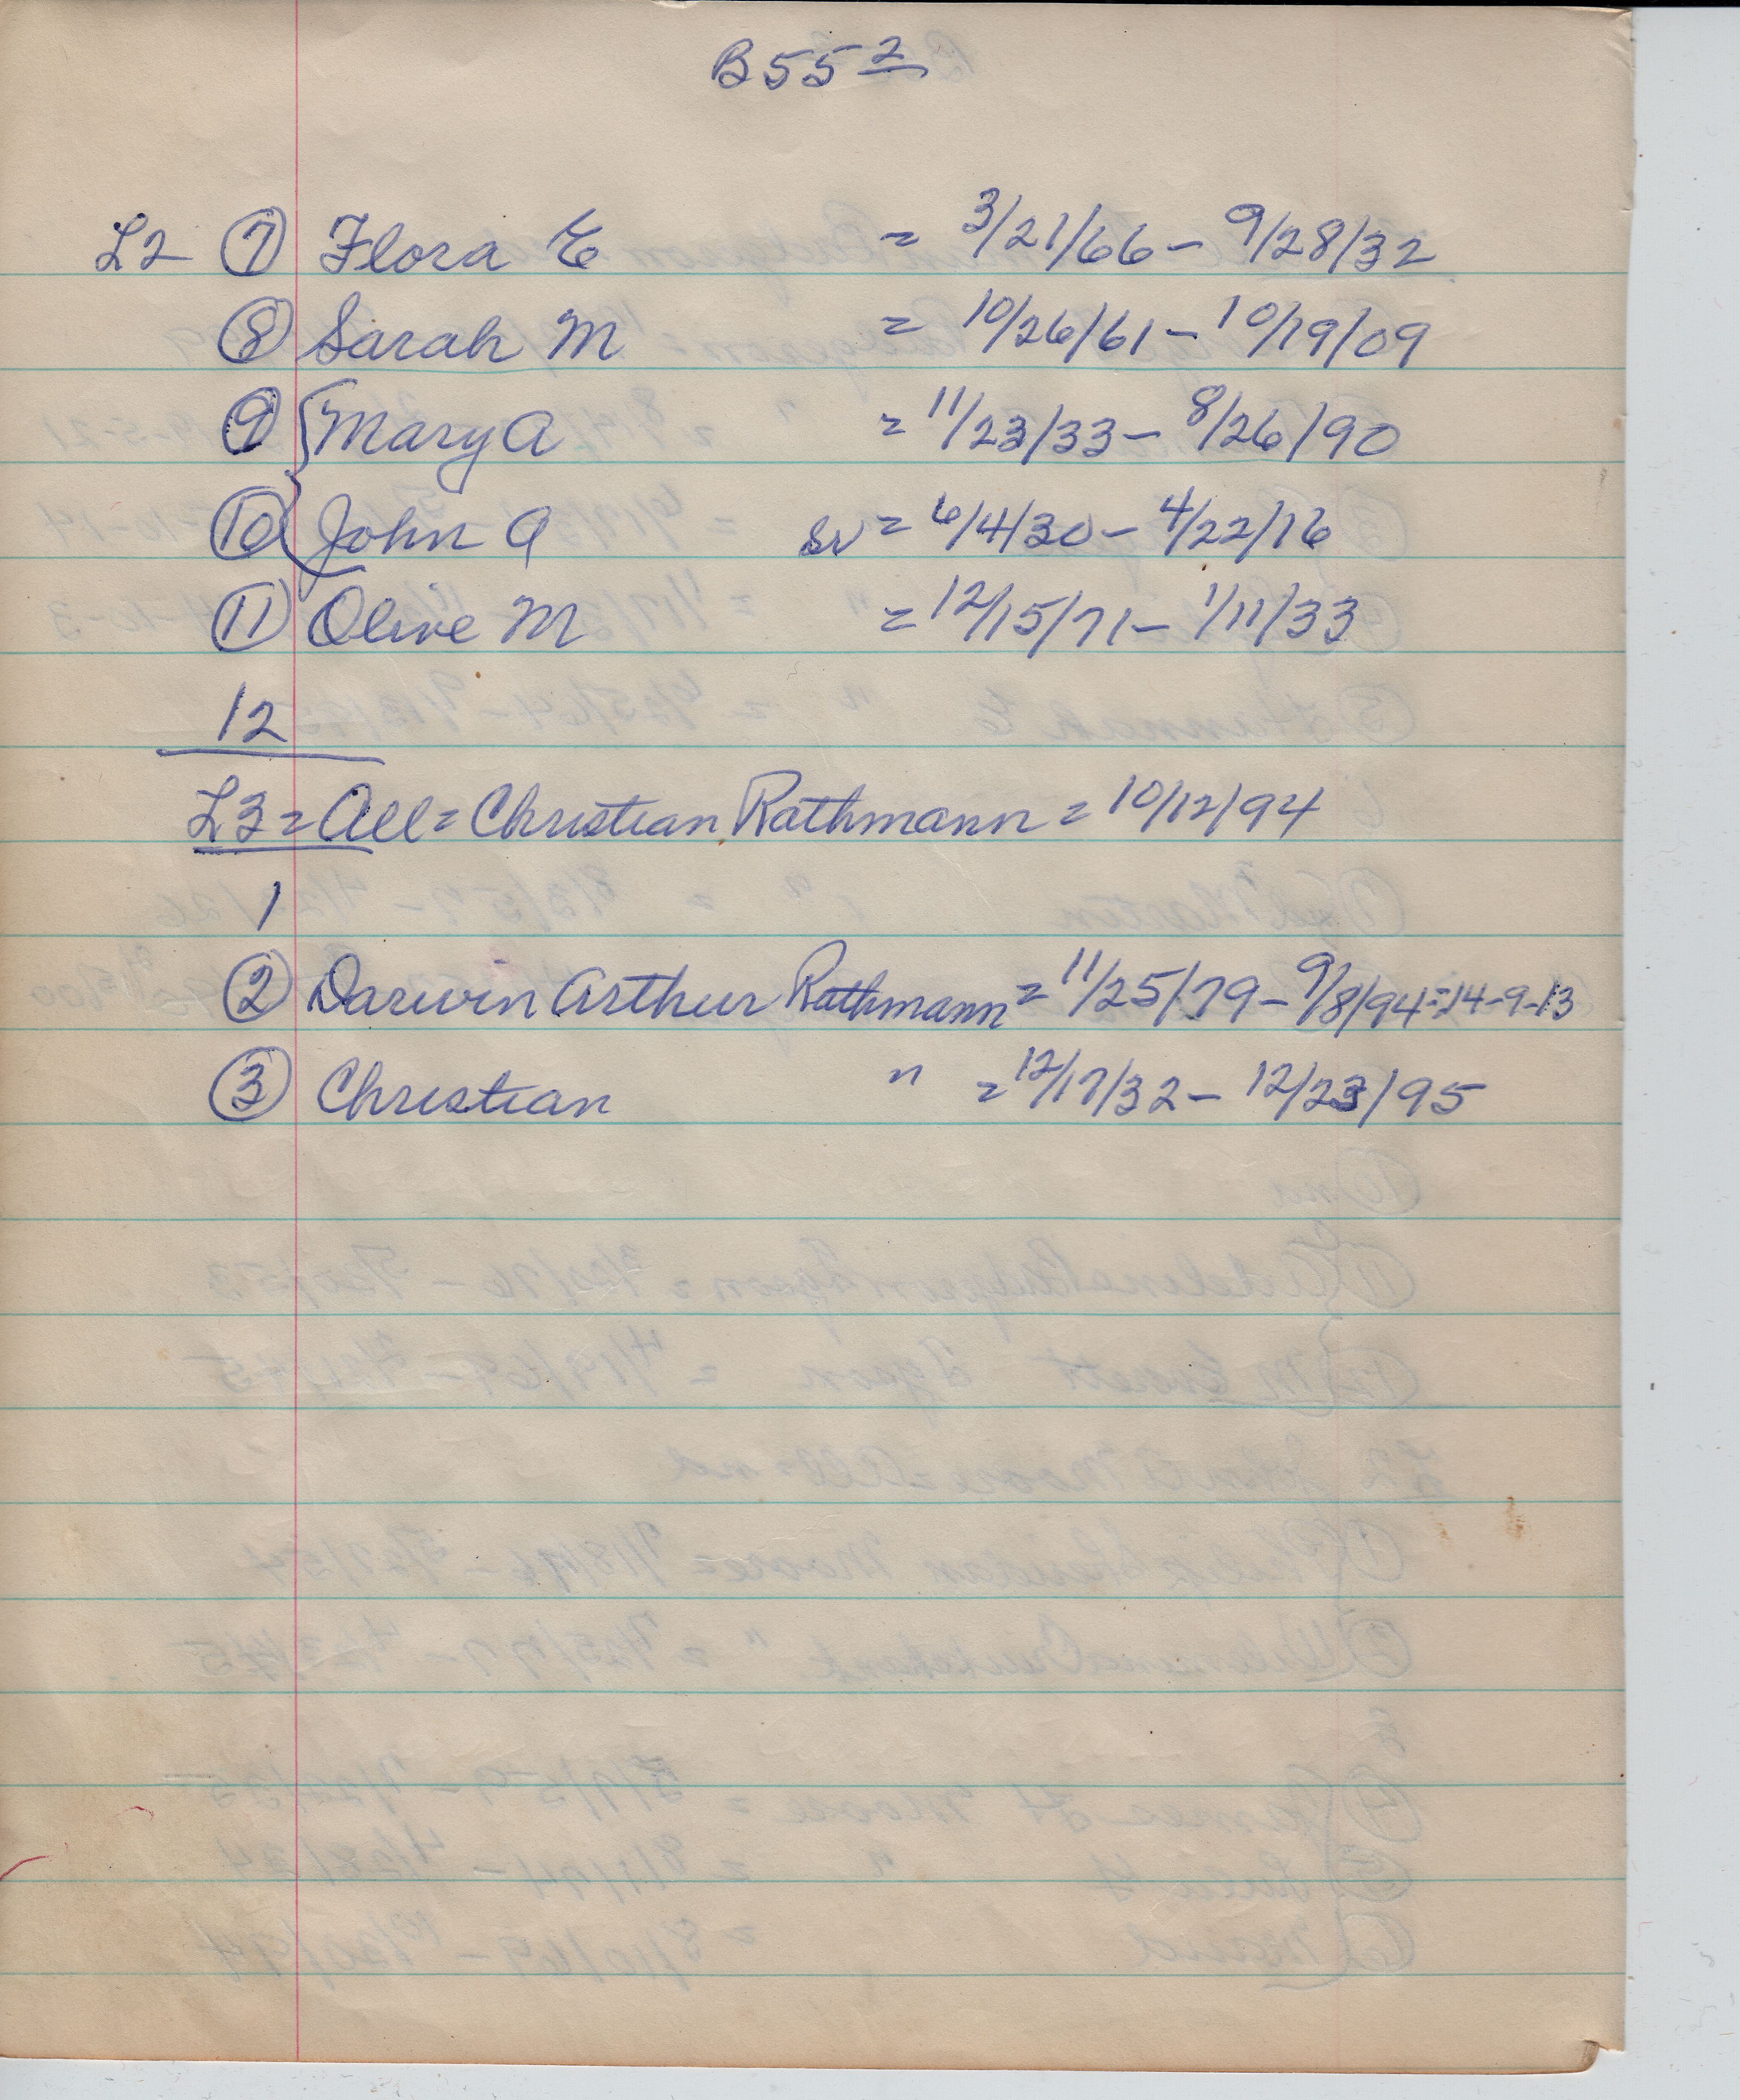 B55 2
L2 ⑦ Flora E = 3/21/66 - 9/28/32
⑧ Sarah M = 10/26/61 - 10/19/09
⑨ Mary A = 11/23/33 - 8/26/90
⑩ John A Sv = 6/4/30 - 4/22/16
⑪ Olive M = 12/15/71 - 1/11/33
12
L3 = All = Christian Rathmann = 10/12/94
1
② Darwin Arthur Rathmann = 11/25/79 - 9/8/94 = 14-9-13
③ Christian " = 12/17/32 - 12/23/95